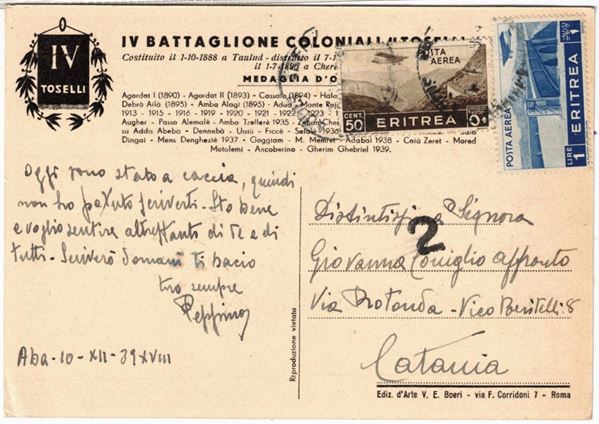 IV
TOSELLI
IV BATTAGLIONE COLONIALE "TOSELLI"
Costituito il 1-10-1888 a Taulud - distrutto il 7-1
il 1-7-189 a Cher
MEDAGLIA D'O
Agordat I (1890) - Agordat II (1893) - Cassala (1894) - Hala
Debrà Ailà (1895) - Amba Alagi (1895) - Adua Monte Raj
1913 - 1915 - 1916 - 1919 - 1920 - 1921 - 1922 - 1923 - 1
Augher - Passo Alemalè - Ambo Tzellerè 1935 - Chen
su Addis Abeba - Dennebà - Uasù - Ficcè - Selale 1936
Dingai - Mens Denghezie 1937 - Goggiam - M. Memret - Adabai 1938 - Caià Zeret - Mored
Motolomi - Ancoberino - Gherim Ghebriel 1939.
POSTA AEREA
CENT. 50
ERITREA
POSTA AEREA
LIRE 1
ERITREA
1
Oggi sono stato a caccia, quindi
non ho potuto scriverti. Sto bene
e voglio sentire altrettanto di Te e di
tutti. Scriverò domani Ti bacio
tuo sempre
Peppino
Aba - 10 - XII - 39 XVIII
2
Distintissima Signora
Giovanna Coniglio Affronto
Via Rotonda - Vico 8
Catania
Riproduzione vietata
Ediz. d'Arte V. E. Boeri - via F. Corridoni 7 - Roma